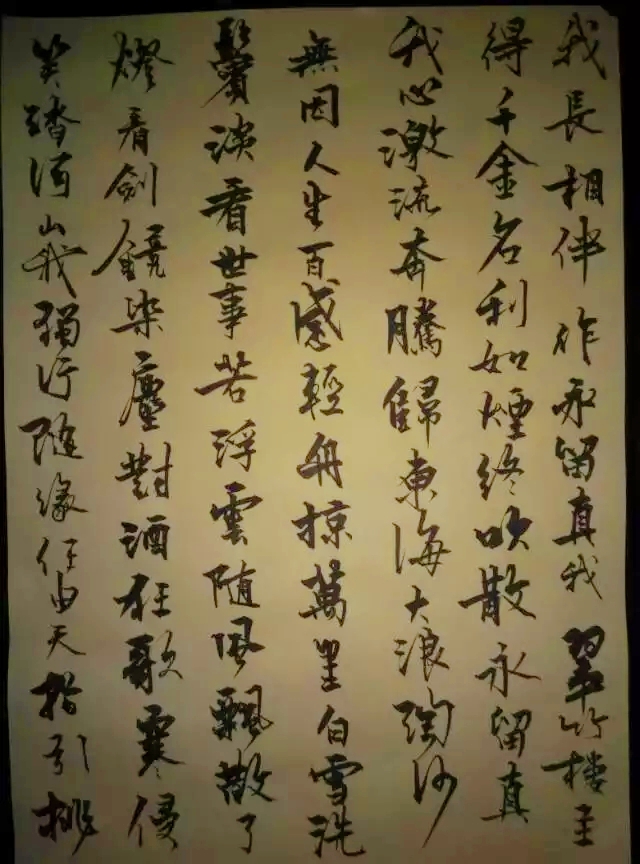 笑踏河山我獨行隨緣任由天指引挑
燈看劍鏡染塵對酒狂歌寒侵
鬢淡看世事若浮雲隨風飄散了
無因人生百感輕舟掠萬里白雪洗
我心激流奔騰歸東海大浪淘沙
得千金名利如煙終吹散永留真
我長相伴 作永留真我 翠竹樓主